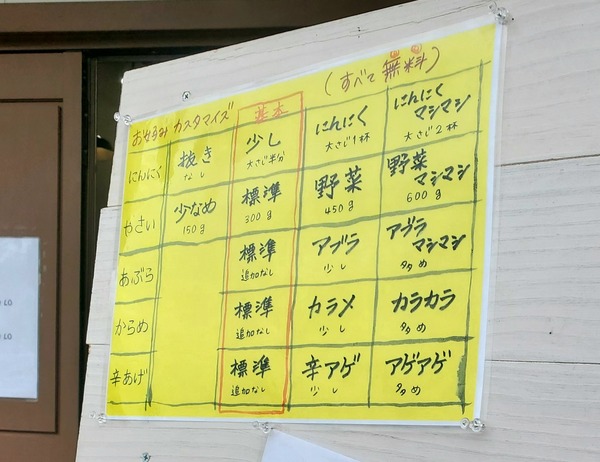 お好みカスタマイズ
(すべて無料)
基本
にんにく 抜き 少し にんにく にんにくマシマシ
なし 大さじ半分 大さじ1杯 大さじ2杯
やさい 少なめ 標準 野菜 野菜マシマシ
150g 300g 450g 600g
あぶら 標準 アブラ アブラマシマシ
追加なし 少し 多め
からめ 標準 カラメ カラカラ
追加なし 少し 多め
辛あげ 標準 辛アゲ アゲアゲ
追加なし 少し 多め